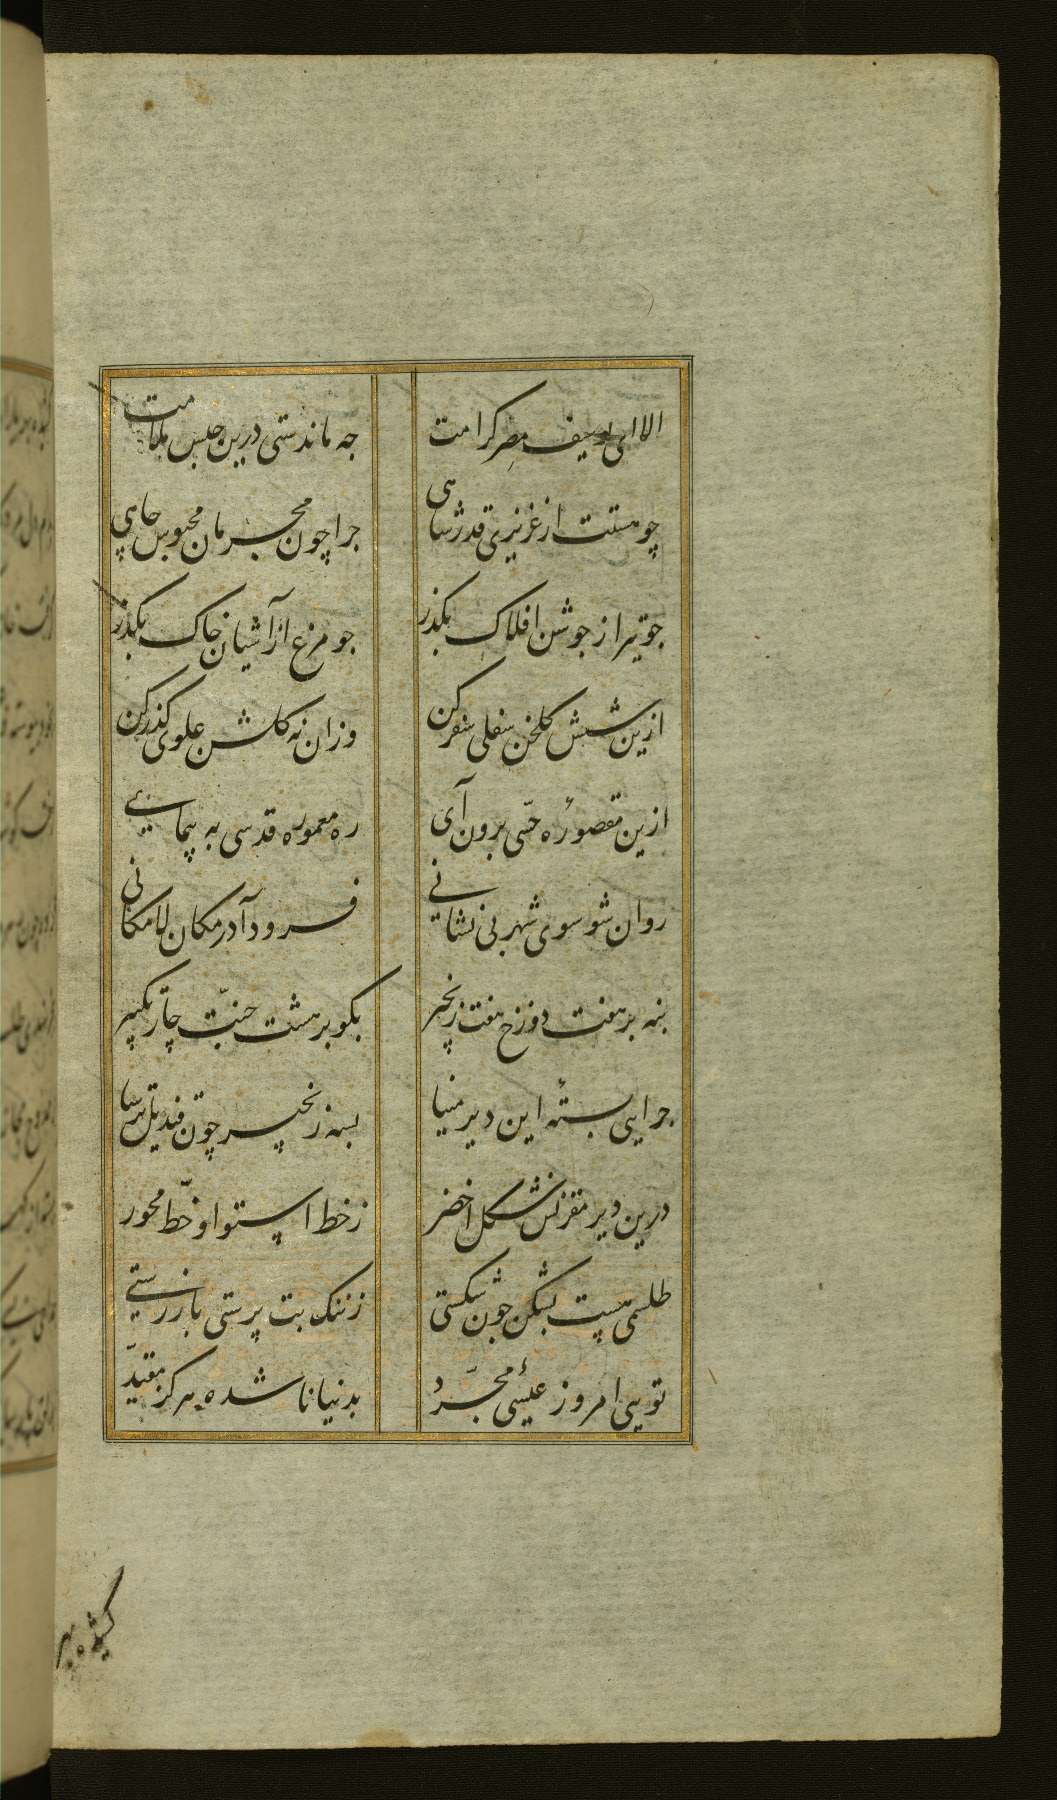 الا ای یوسف مصر کرامت
جه ماندستی درین حبس ملامت
چو هستت از عزیزی قدر شاهی
جرا چون مجرمان محبوس چاهی
جو تیر از جوشن افلاک بکذر
جو مرغ از آشیان خاک بکذر
ازین شش کلخن سفلی سفر کن
وزان نه کلشن علوی کذر کن
ازین مقصورهٔ حسّی برون آی
ره معموره قدسی به پیمایی
روان شو سوی شهر بی نشانی
فرود آ در مکان لا مکانی
بنه بر هفت دوزخ هفت زنجیر
بکو بر هشت جنّت چار تکبیر
جرایی بستهٔ این دیر مینا
بسه زنجیر چون قندیل ترسا
درین دیر مقرنس شکل اخضر
ز خط استوا و خطّ محور
طلسمی هست بشکن جون شکستی
ز ننک بت پرستی باز رستی
تویی امروز عیسیٔ مجرّد
بدنیا نا شده هرکز مقیّد
کشیده بهر